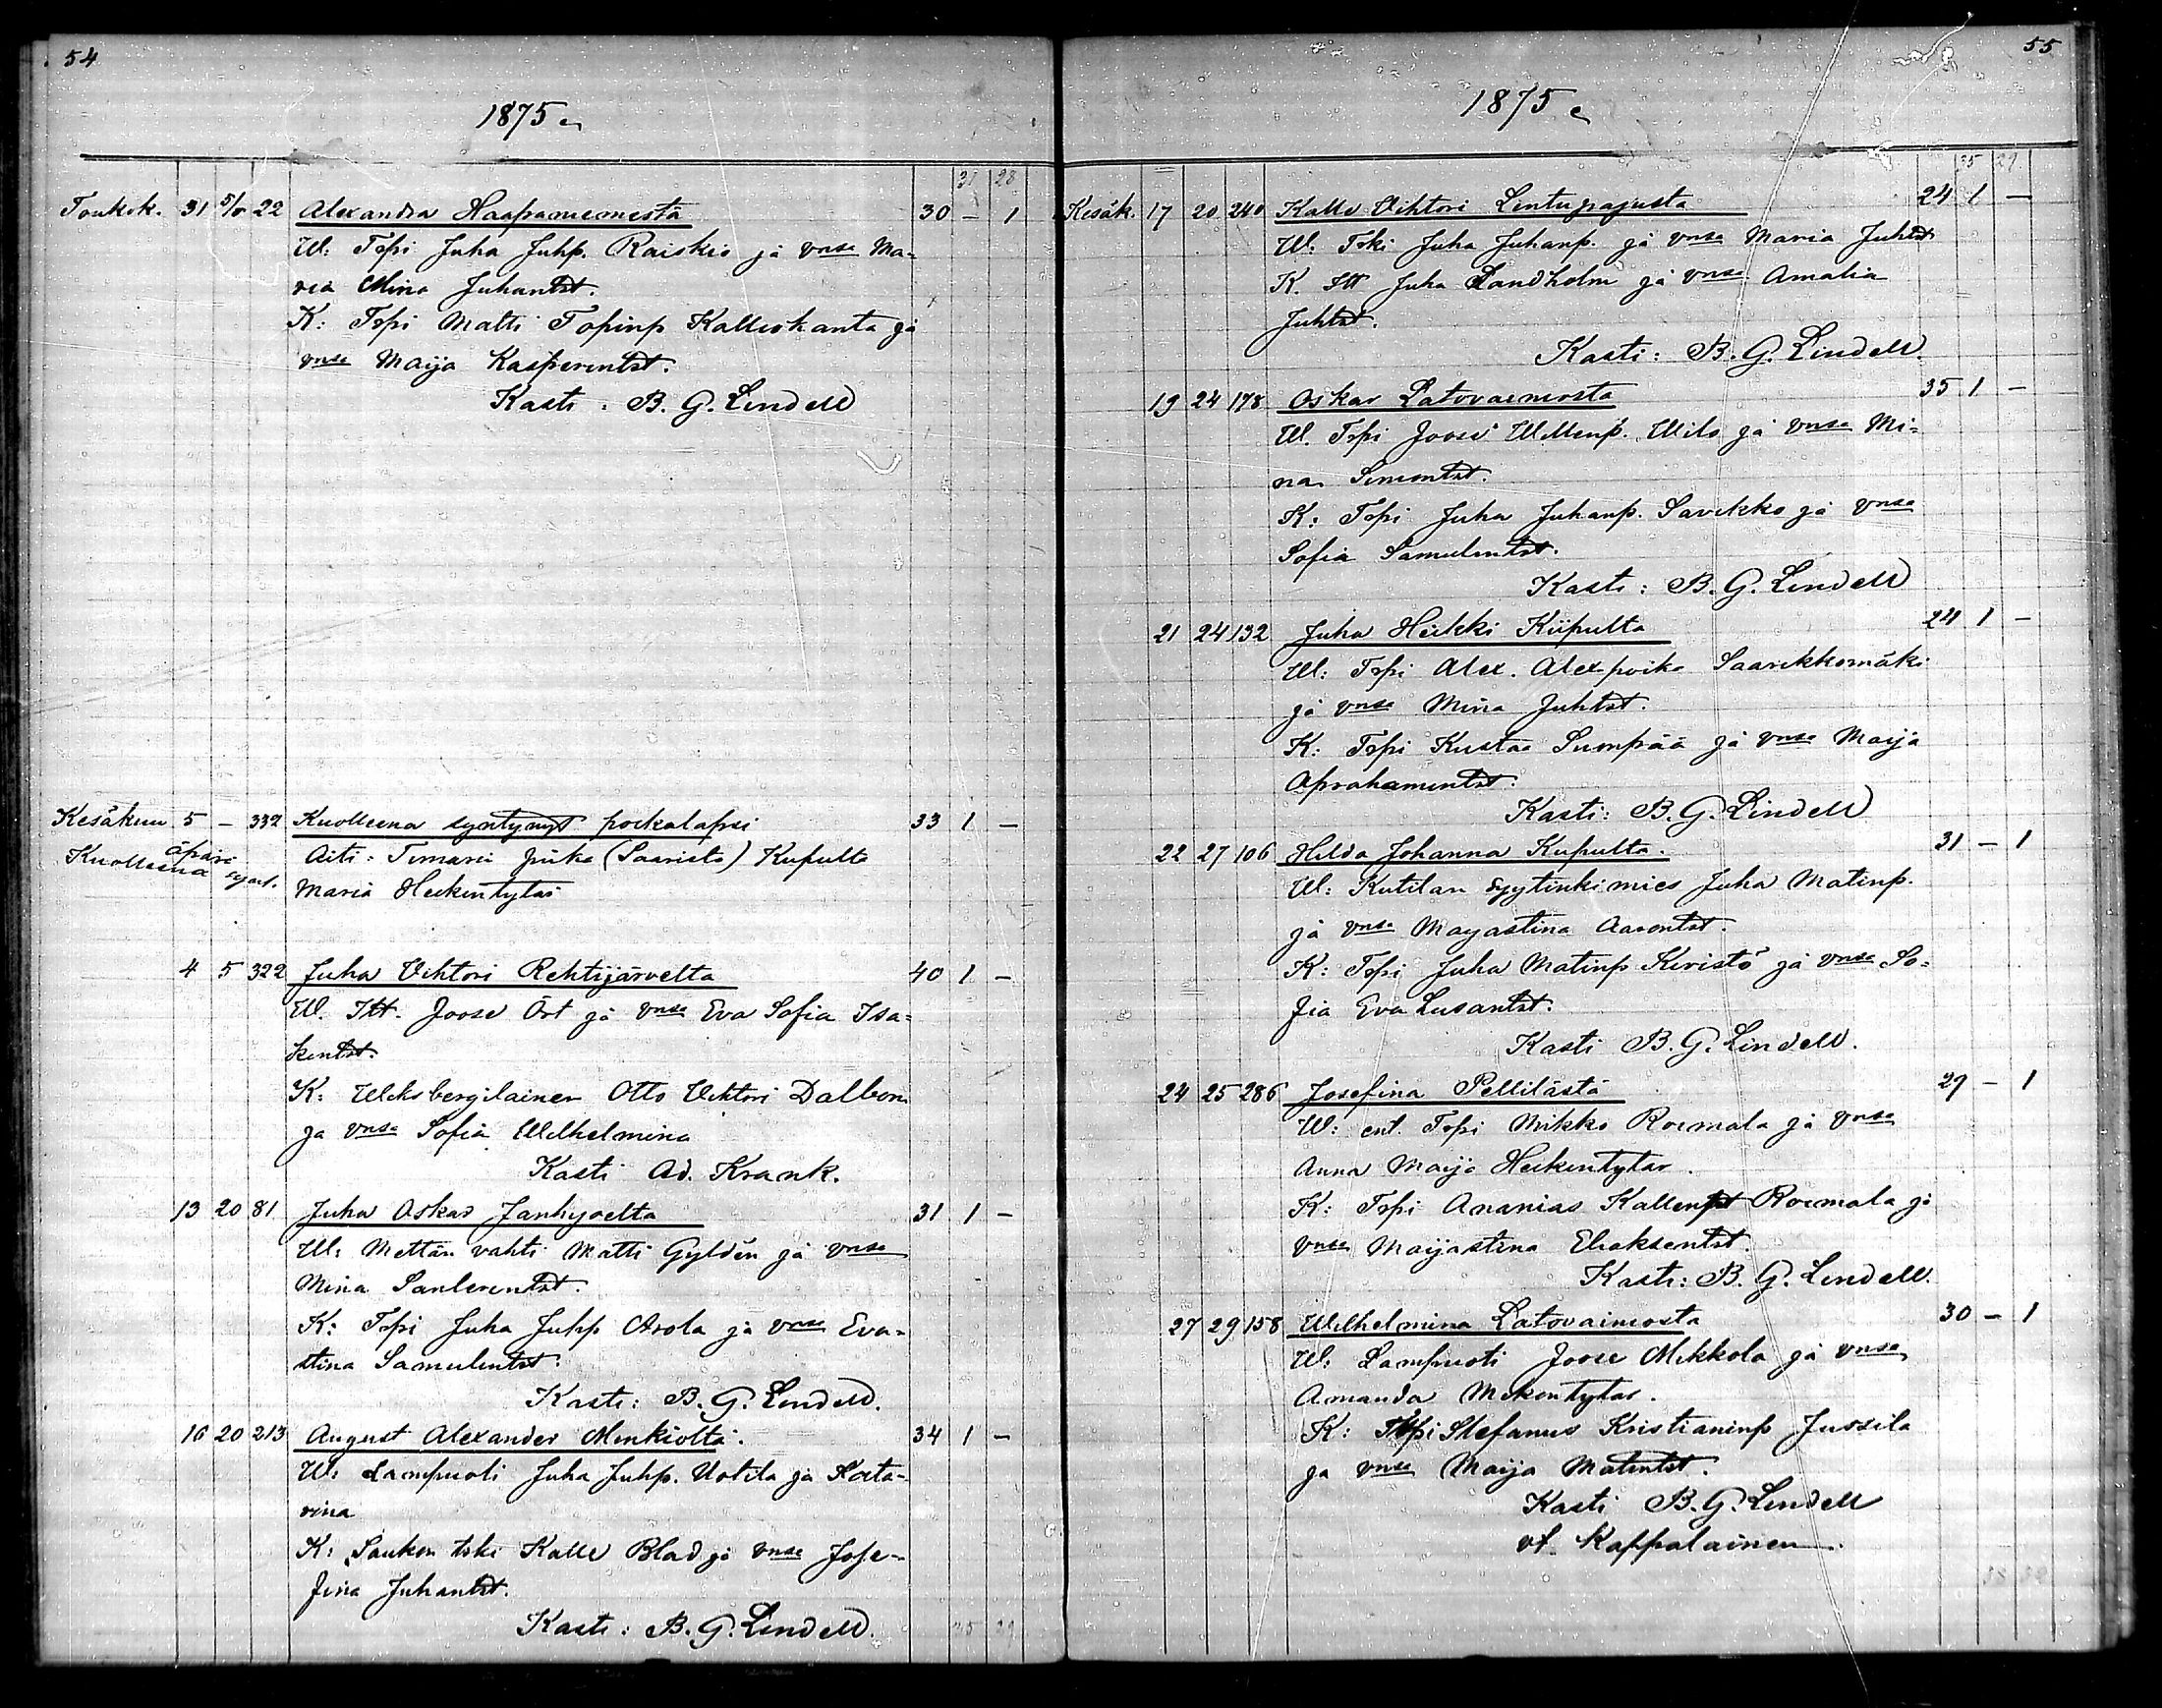 54
1875
31 28
Toukok. 31 5/6 22 Alexandra Haapaniemestä 30 – 1
W: Topi Juha Juhp. Raiskio ja vnsa Ma-
ria Mina Juhantst.
K: Topi Matti Topinp Kalliokanta ja
vnsa Maija Kasperintst.
Kasti: B. G. Lindell
Kesäkuu 5 – 332 Kuolleena syntynyt poikalapsi 33 1 –
äpärä
Kuolleena synt.
Äiti: Piika (Saaristo) Kupulta
Maria Heikintytär
4 5 322 Juha Vihtori Rehtijärvelta 40 1 –
W. Itt. Joose Ört ja vnsa Eva Sofia Isa-
kintst.
K: Otto Vihtori Dalbom
ja vnsa Sofia Wilhelmina
Kasti Ad. Krank.
13 20 81 Juha Oskar Janhijoelta 31 1 –
W: Mettän vahti Matti Gyldén ja vnsa
Mina
K: Topi Juha Juhp Arola ja vnsa Eva-
stina Samulintst.
Kasti: B. G. Lindell.
16 20 213 August Alexander Minkiöltä. 34 1 –
W: Lampuoti Juha Juhp. Uotila ja Kata-
rina
K: Saukon tski Kalle Blad ja vnsa Jose-
fina Juhantst.
Kasti: B. G. Lindell.
35 29
55
1875
35 29
Kesäk. 17 20 240 Kalle Vihtori Lintupajusta 24 1 –
W. Tski Juha Juhanp. ja vnsa Maria Juhtst
K. Itt Juha Landholm ja vnsa Amalia
Juhtst.
Kasti: B. G. Lindell.
19 24 178 Oskar Latovainiosta 35 1 –
W. Topi Joose Willenp. Wilo ja vnsa Mi-
na Simontst.
K: Topi Juha Juhanp. Savikko ja vnsa
Sofia Samulintst.
Kasti: B. G. Lindell
21 24 132 Juha Heikki Kiipulta 24 1 –
W: Topi Alex. Alexpoika Saarikkomäki
ja vnsa Mina Juhtst.
K: Topi Kustaa Sumpää ja vnsa Maija
Aprahamintst.
Kasti: B. G. Lindell
22 27 106 Hilda Johanna Kupulta. 31 – 1
W: Kutilan syytinkimies Juha Matinp.
ja vnsa Majastina Aarontst.
K: Topi Juha Matinp Keristö ja vnsa So-
fia Eva Lusantst.
Kasti B. G. Lindell.
24 25 286 Josefina Pellilästä 29 – 1
W: ent. Topi Mikko Roimala ja vnsa
Anna Maija Heikintytär.
K: Topi Ananias Kallenp Roimala ja
vnsa Maijastina Eliaksentst.
Kasti: B. G. Lindell.
27 29 158 Wilhelmina Latovainiosta 30 – 1
W: Lampuoti Joose Mikkola ja vnsa
Amanda Mikontytär.
K: Topi Stefanus Kristianinp Jussila
ja vnsa Maija Matintst.
Kasti B. G. Lindell
vt. Kappalainen.
38 32